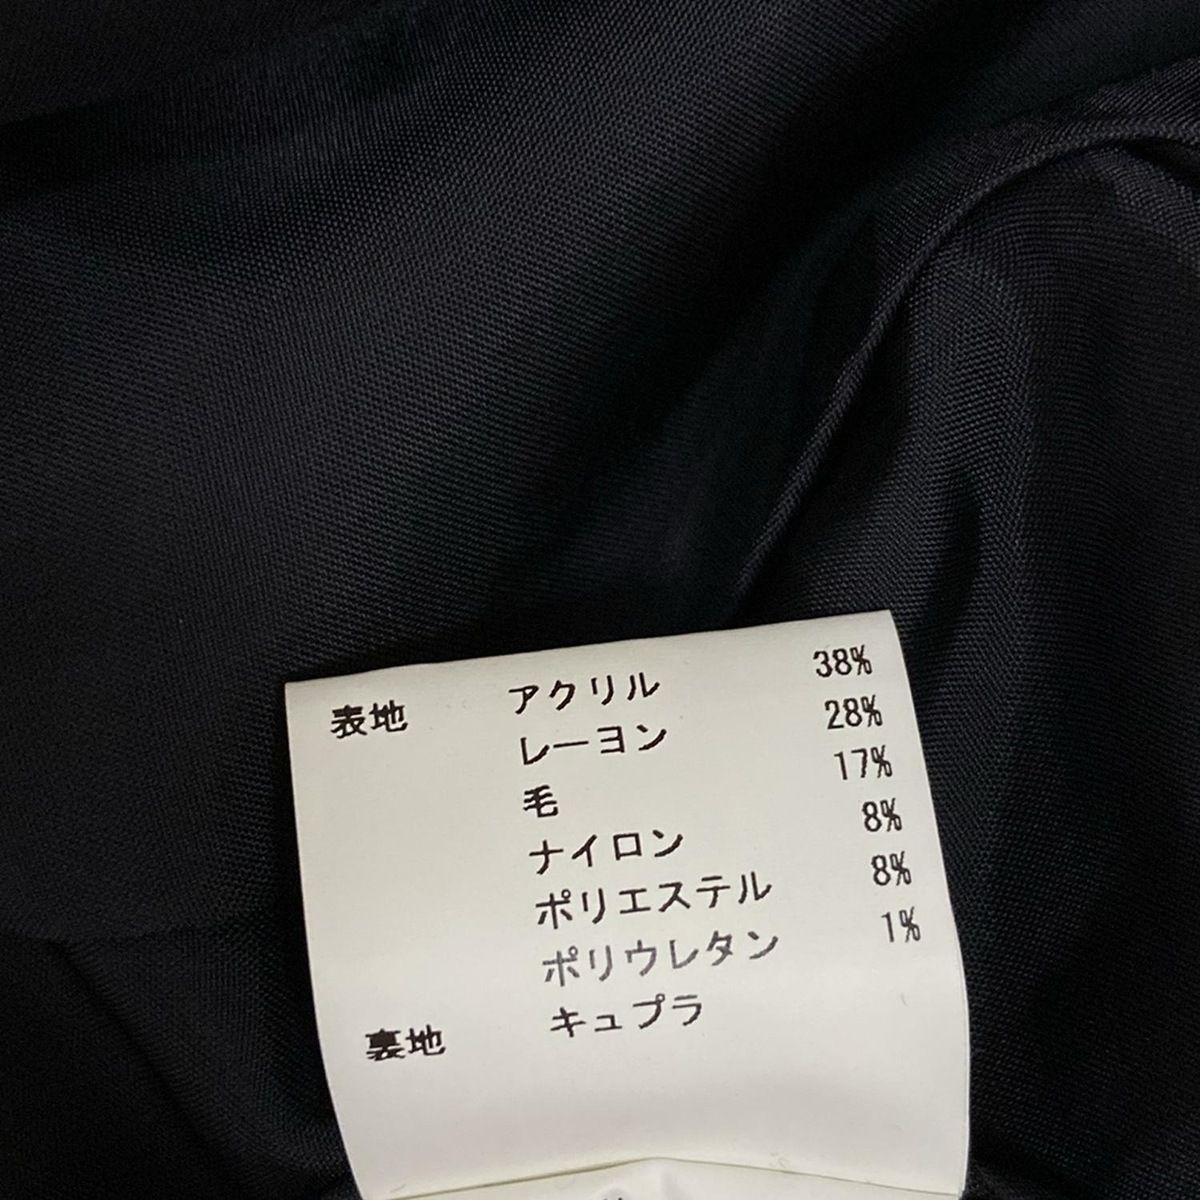 表地 アクリル 38%
レーヨン 28%
毛 17%
ナイロン 8%
ポリエステル 8%
ポリウレタン 1%
裏地 キュプラ